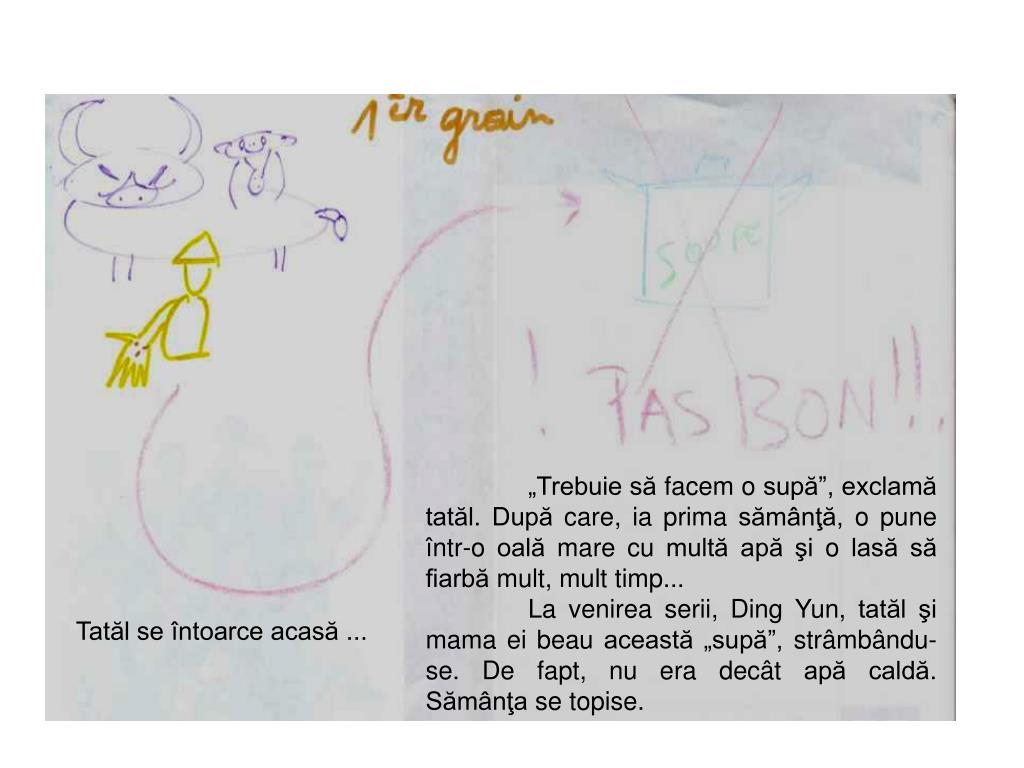 1er grain
SOUPE
! PAS BON !!.
„Trebuie să facem o supă”, exclamă
tatăl. După care, ia prima sămânţă, o pune
într-o oală mare cu multă apă şi o lasă să
fiarbă mult, mult timp...
La venirea serii, Ding Yun, tatăl şi
mama ei beau această „supă”, strâmbându-
se. De fapt, nu era decât apă caldă.
Sămânţa se topise.
Tatăl se întoarce acasă ...